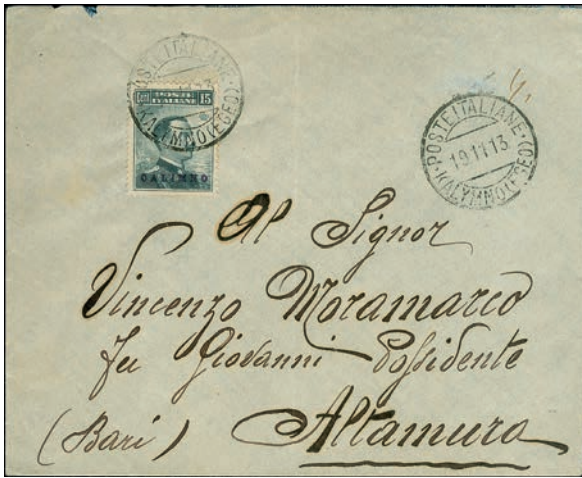 POSTE ITALIANE
KALYMNO (EGEO)
POSTE ITALIANE 15
CALIMNO
POSTE ITALIANE
19.11.13
KALYMNO (EGEO)
Al Signor
Vincenzo Moramarco
fu Giovanni Possidente
(Bari) Altamura